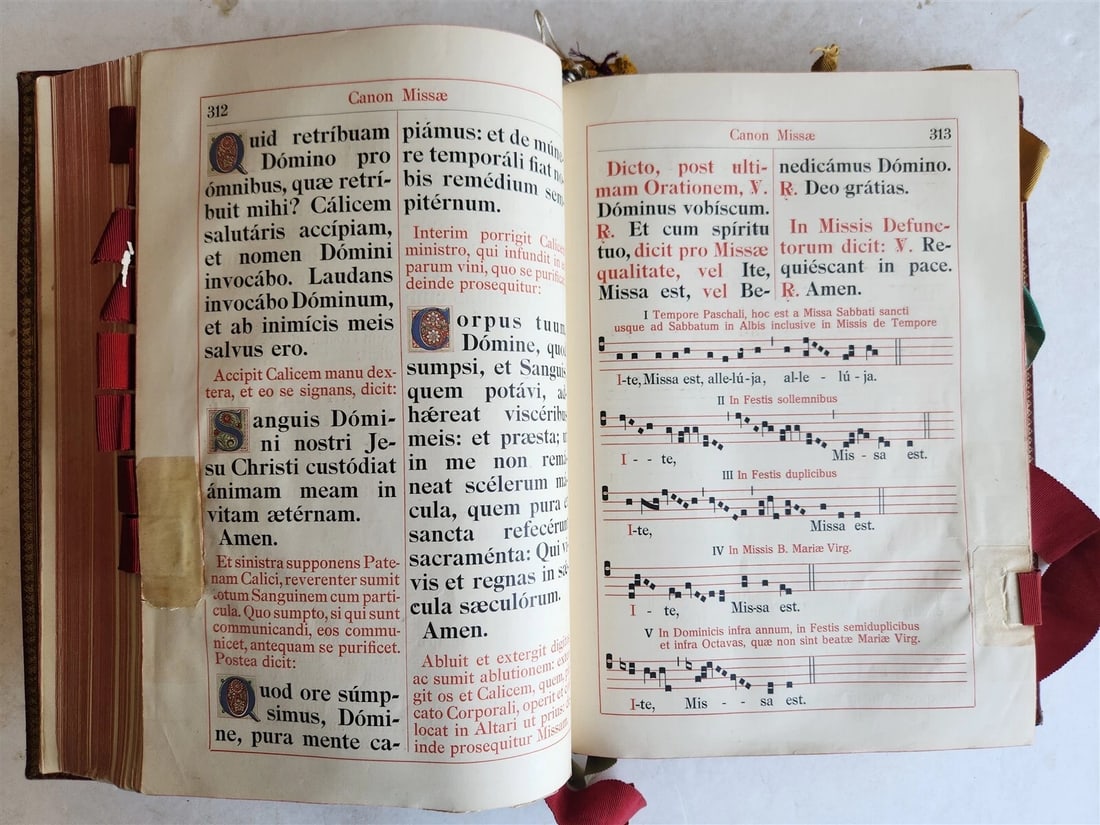 312
Canon Missæ
Quid retríbuam
Dómino pro
ómnibus, quæ retrí-
buit mihi? Cálicem
salutáris accípiam,
et nomen Dómini
invocábo. Laudans
invocábo Dóminum,
et ab inimícis meis
salvus ero.
Accipit Calicem manu dex-
tera, et eo se signans, dicit:
Sanguis Dómi-
ni nostri Je-
su Christi custódiat
ánimam meam in
vitam ætérnam.
Amen.
Et sinistra supponens Pate-
nam Calici, reverenter sumit
totum Sanguinem cum parti-
cula. Quo sumpto, si qui sunt
communicandi, eos commu-
nicet, antequam se purificet.
Postea dicit:
Quod ore súmp-
simus, Dómi-
ne, pura mente ca-
piámus: et de múne-
re temporáli fiat no-
bis remédium sem-
pitérnum.
Interim porrigit Calicem
ministro, qui infundit in
parum vini, quo se purificat:
deinde prosequitur:
Corpus tuum,
Dómine, quod
sumpsi, et Sanguis,
quem potávi, ad-
hǽreat viscéribus
meis: et præsta; ut
in me non remá-
neat scélerum má-
cula, quem pura et
sancta refecérunt
sacraménta: Qui vi-
vis et regnas in sǽ-
cula sæculórum.
Amen.
Abluit et extergit digitos,
ac sumit ablutionem: exter-
git os et Calicem, quem,
cato Corporali, operit et col-
locat in Altari ut prius:
inde prosequitur Missam.
Canon Missæ
313
Dicto, post ulti-
mam Orationem, ℣.
Dóminus vobíscum.
℟. Et cum spíritu
tuo, dicit pro Missæ
qualitate, vel Ite,
Missa est, vel Be-
nedicámus Dómino.
℟. Deo grátias.
In Missis Defunc-
torum dicit: ℣. Re-
quiéscant in pace.
℟. Amen.
I Tempore Paschali, hoc est a Missa Sabbati sancti
usque ad Sabbatum in Albis inclusive in Missis de Tempore
I-te, Missa est, alle-lú-ja, al-le - lú - ja.
II In Festis sollemnibus
I - - te, Mis - sa est.
III In Festis duplicibus
I-te, Missa est.
IV In Missis B. Mariæ Virg.
I - te, Mis-sa est.
V In Dominicis infra annum, in Festis semiduplicibus
et infra Octavas, quæ non sint beatæ Mariæ Virg.
I-te, Mis - - sa est.